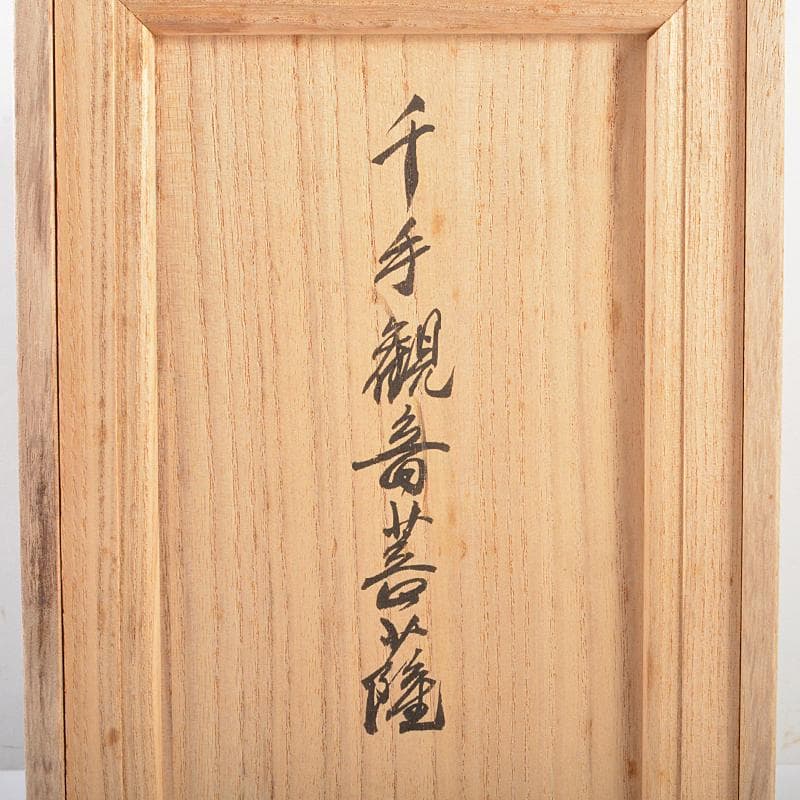 千手観音菩薩